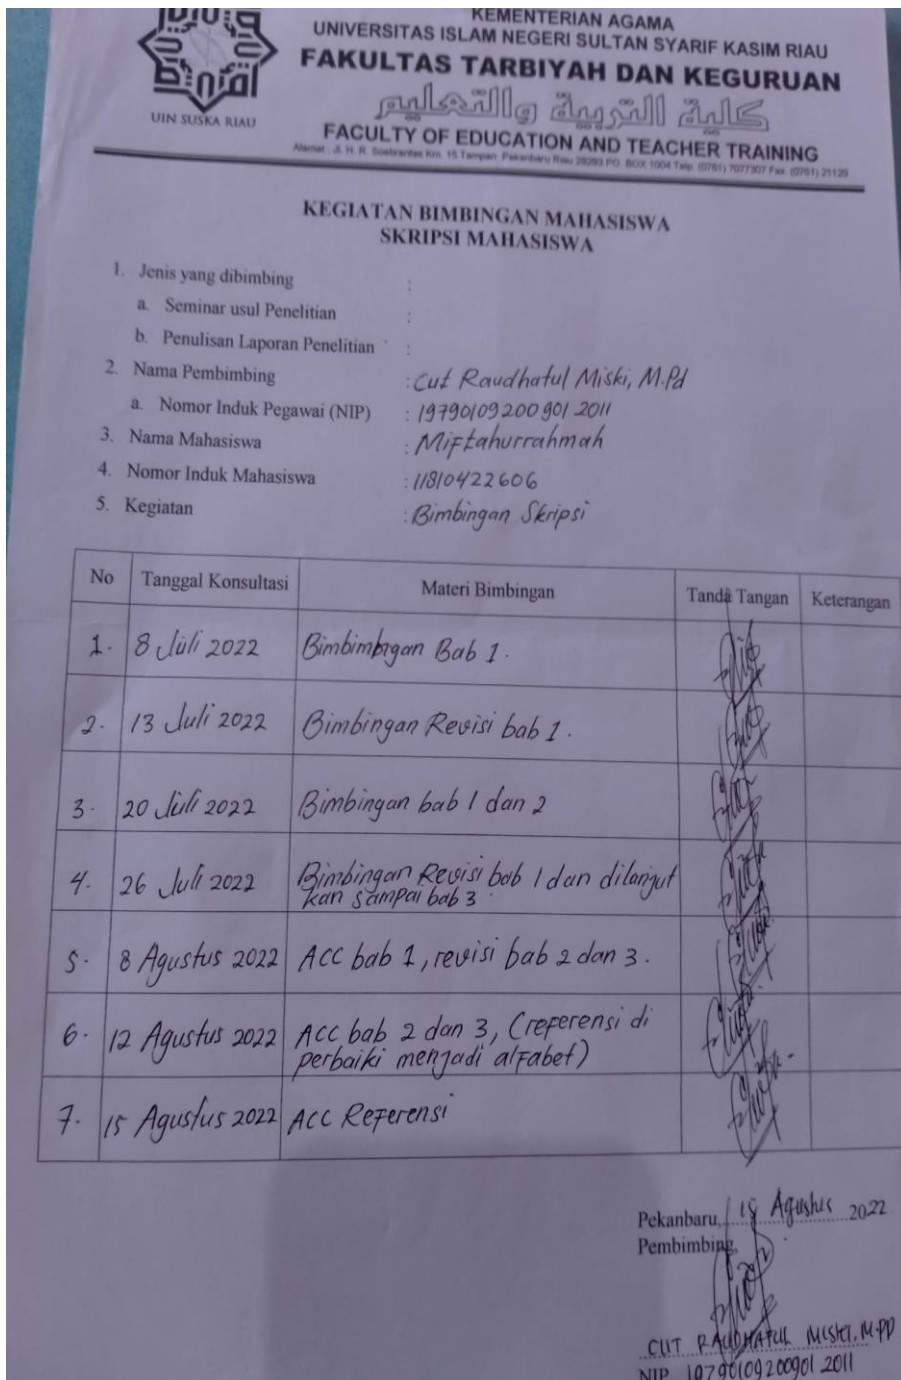 UIN SUSKA RIAU
KEMENTERIAN AGAMA
UNIVERSITAS ISLAM NEGERI SULTAN SYARIF KASIM RIAU
FAKULTAS TARBIYAH DAN KEGURUAN
كلية التربية والتعليم
FACULTY OF EDUCATION AND TEACHER TRAINING
Alamat : Jl. H. R. Soebrantas Km. 15 Tampan Pekanbaru Riau 28293 PO. BOX 1004 Telp. (0761) 7077307 Fax. (0761) 21129
KEGIATAN BIMBINGAN MAHASISWA
SKRIPSI MAHASISWA
1. Jenis yang dibimbing :
a. Seminar usul Penelitian :
b. Penulisan Laporan Penelitian :
2. Nama Pembimbing : Cut Raudhatul Miski, M.Pd
a. Nomor Induk Pegawai (NIP) : 19790109200901 2011
3. Nama Mahasiswa : Miftahurrahmah
4. Nomor Induk Mahasiswa : 11810422606
5. Kegiatan : Bimbingan Skripsi
No Tanggal Konsultasi Materi Bimbingan Tanda Tangan Keterangan
1. 8 Juli 2022 Bimbimbngan Bab 1.
2. 13 Juli 2022 Bimbingan Revisi bab 1.
3. 20 Juli 2022 Bimbingan bab 1 dan 2
4. 26 Juli 2022 Bimbingan Revisi bab 1 dan dilanjut
kan sampai bab 3
5. 8 Agustus 2022 ACC bab 1, revisi bab 2 dan 3.
6. 12 Agustus 2022 ACC bab 2 dan 3, (referensi di
perbaiki menjadi alfabet)
7. 15 Agustus 2022 ACC Referensi
Pekanbaru, 15 Agustus 2022
Pembimbing,
CUT RAUDHATUL MISKI, M.PD
NIP 19790109200901 2011